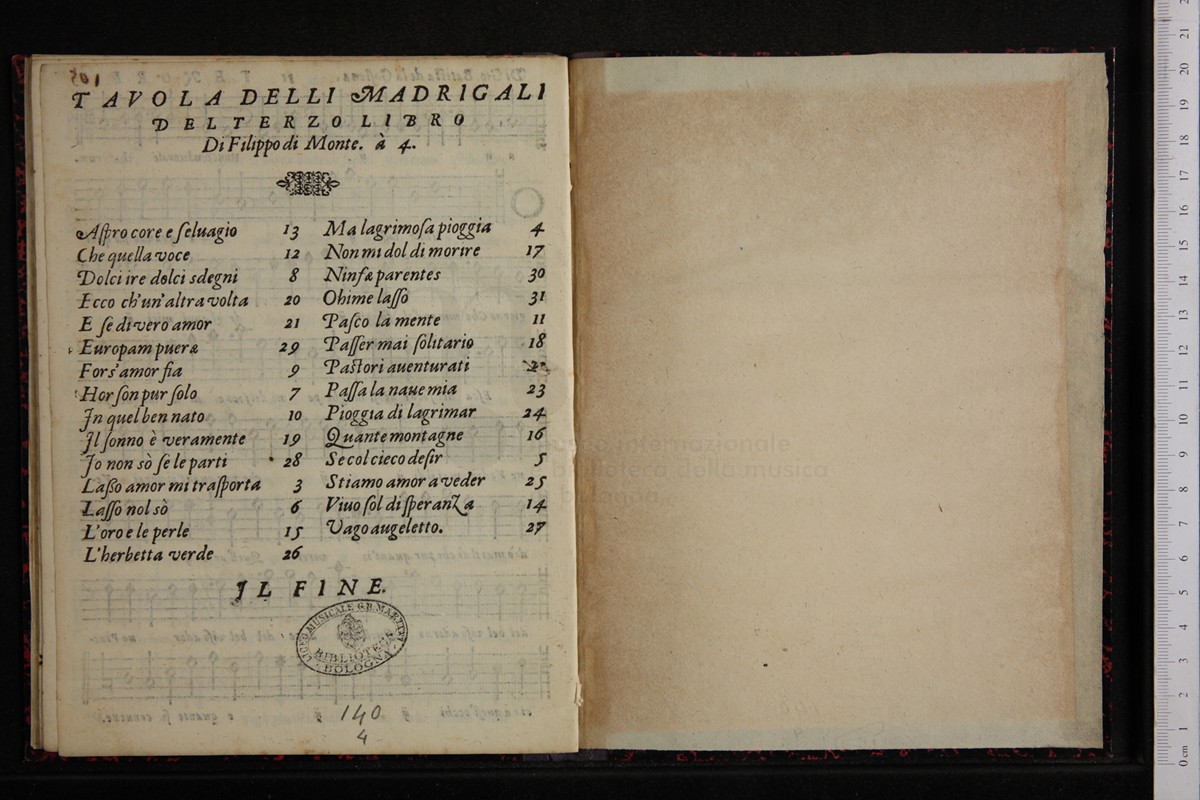 105
TAVOLA DELLI MADRIGALI
DEL TERZO LIBRO
Di Filippo di Monte. à 4.
Aſpro core e ſeluagio 13
Che quella voce 12
Dolci ire dolci sdegni 8
Ecco ch'un'altra volta 20
E ſe di vero amor 21
Europam pueræ 29
Fors'amor ſia 9
Hor ſon pur ſolo 7
In quel ben nato 10
Il ſonno è veramente 19
Io non sò ſe le parti 28
Laßo amor mi traſporta 3
Laſſo nol sò 6
L'oro e le perle 15
L'herbetta verde 26
Ma lagrimoſa pioggia 4
Non mi dol di morire 17
Ninfæ parentes 30
Ohime laſſo 31
Paſco la mente 11
Paſſer mai ſolitario 18
Paſtori auenturati
Paſſa la naue mia 23
Pioggia di lagrimar 24
Quante montagne 16
Se col cieco deſir 5
Stiamo amor a veder 25
Viuo ſol di ſperanza 14
Vago augeletto. 27
IL FINE.
LICEO MUSICALE G.B. MARTINI
BIBLIOTECA
BOLOGNA
140
4
museo internazionale
biblioteca della musica
bologna
0 cm 1 2 3 4 5 6 7 8 9 10 11 12 13 14 15 16 17 18 19 20 21